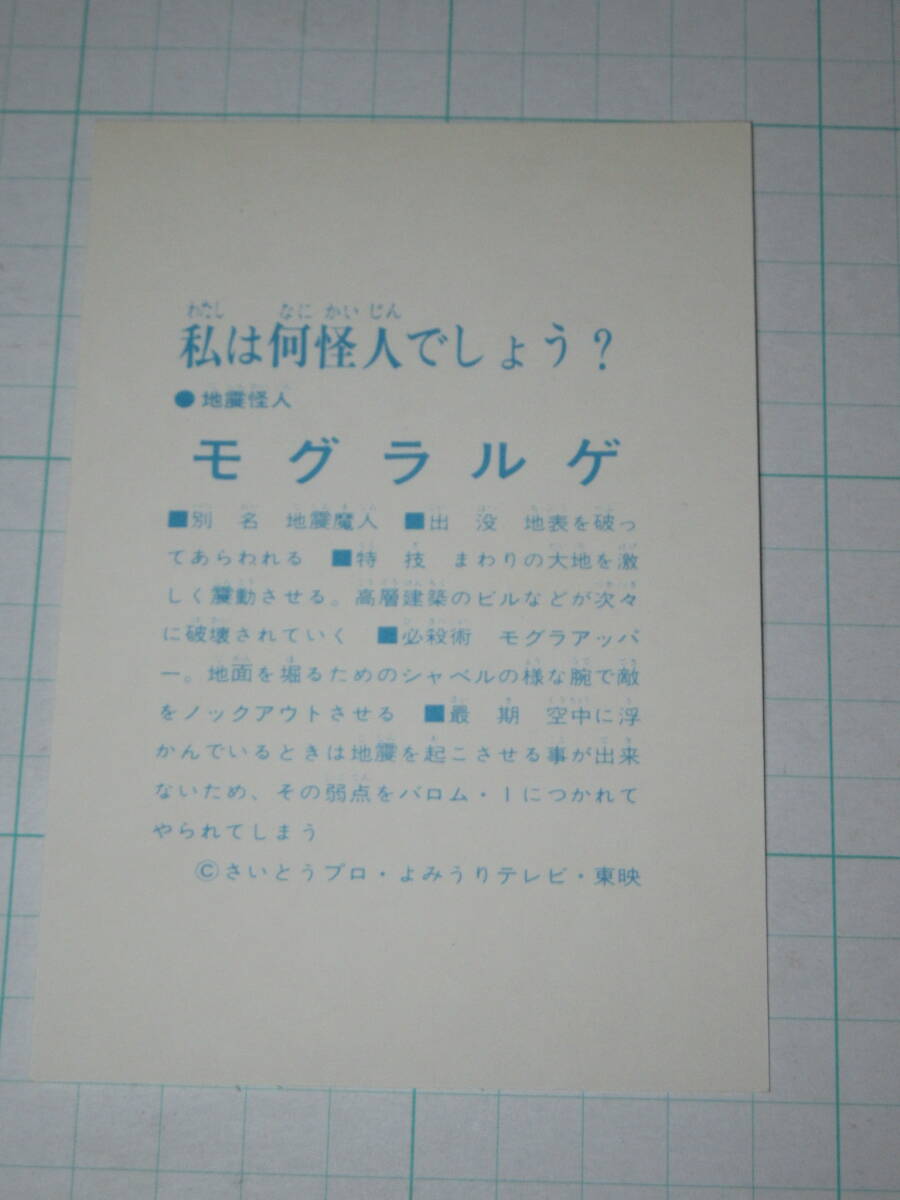 私は何怪人でしょう?
●地震怪人
モグラルゲ
■別 名 地震魔人 ■出 没 地表を破っ
てあらわれる ■特 技 まわりの大地を激
しく震動させる。高層建築のビルなどが次々
に破壊されていく ■必殺術 モグラアッパ
ー。地面を堀るためのシャベルの様な腕で敵
をノックアウトさせる ■最 期 空中に浮
かんでいるときは地震を起こさせる事が出来
ないため、その弱点をバロム・1につかれて
やられてしまう
©さいとうプロ・よみうりテレビ・東映